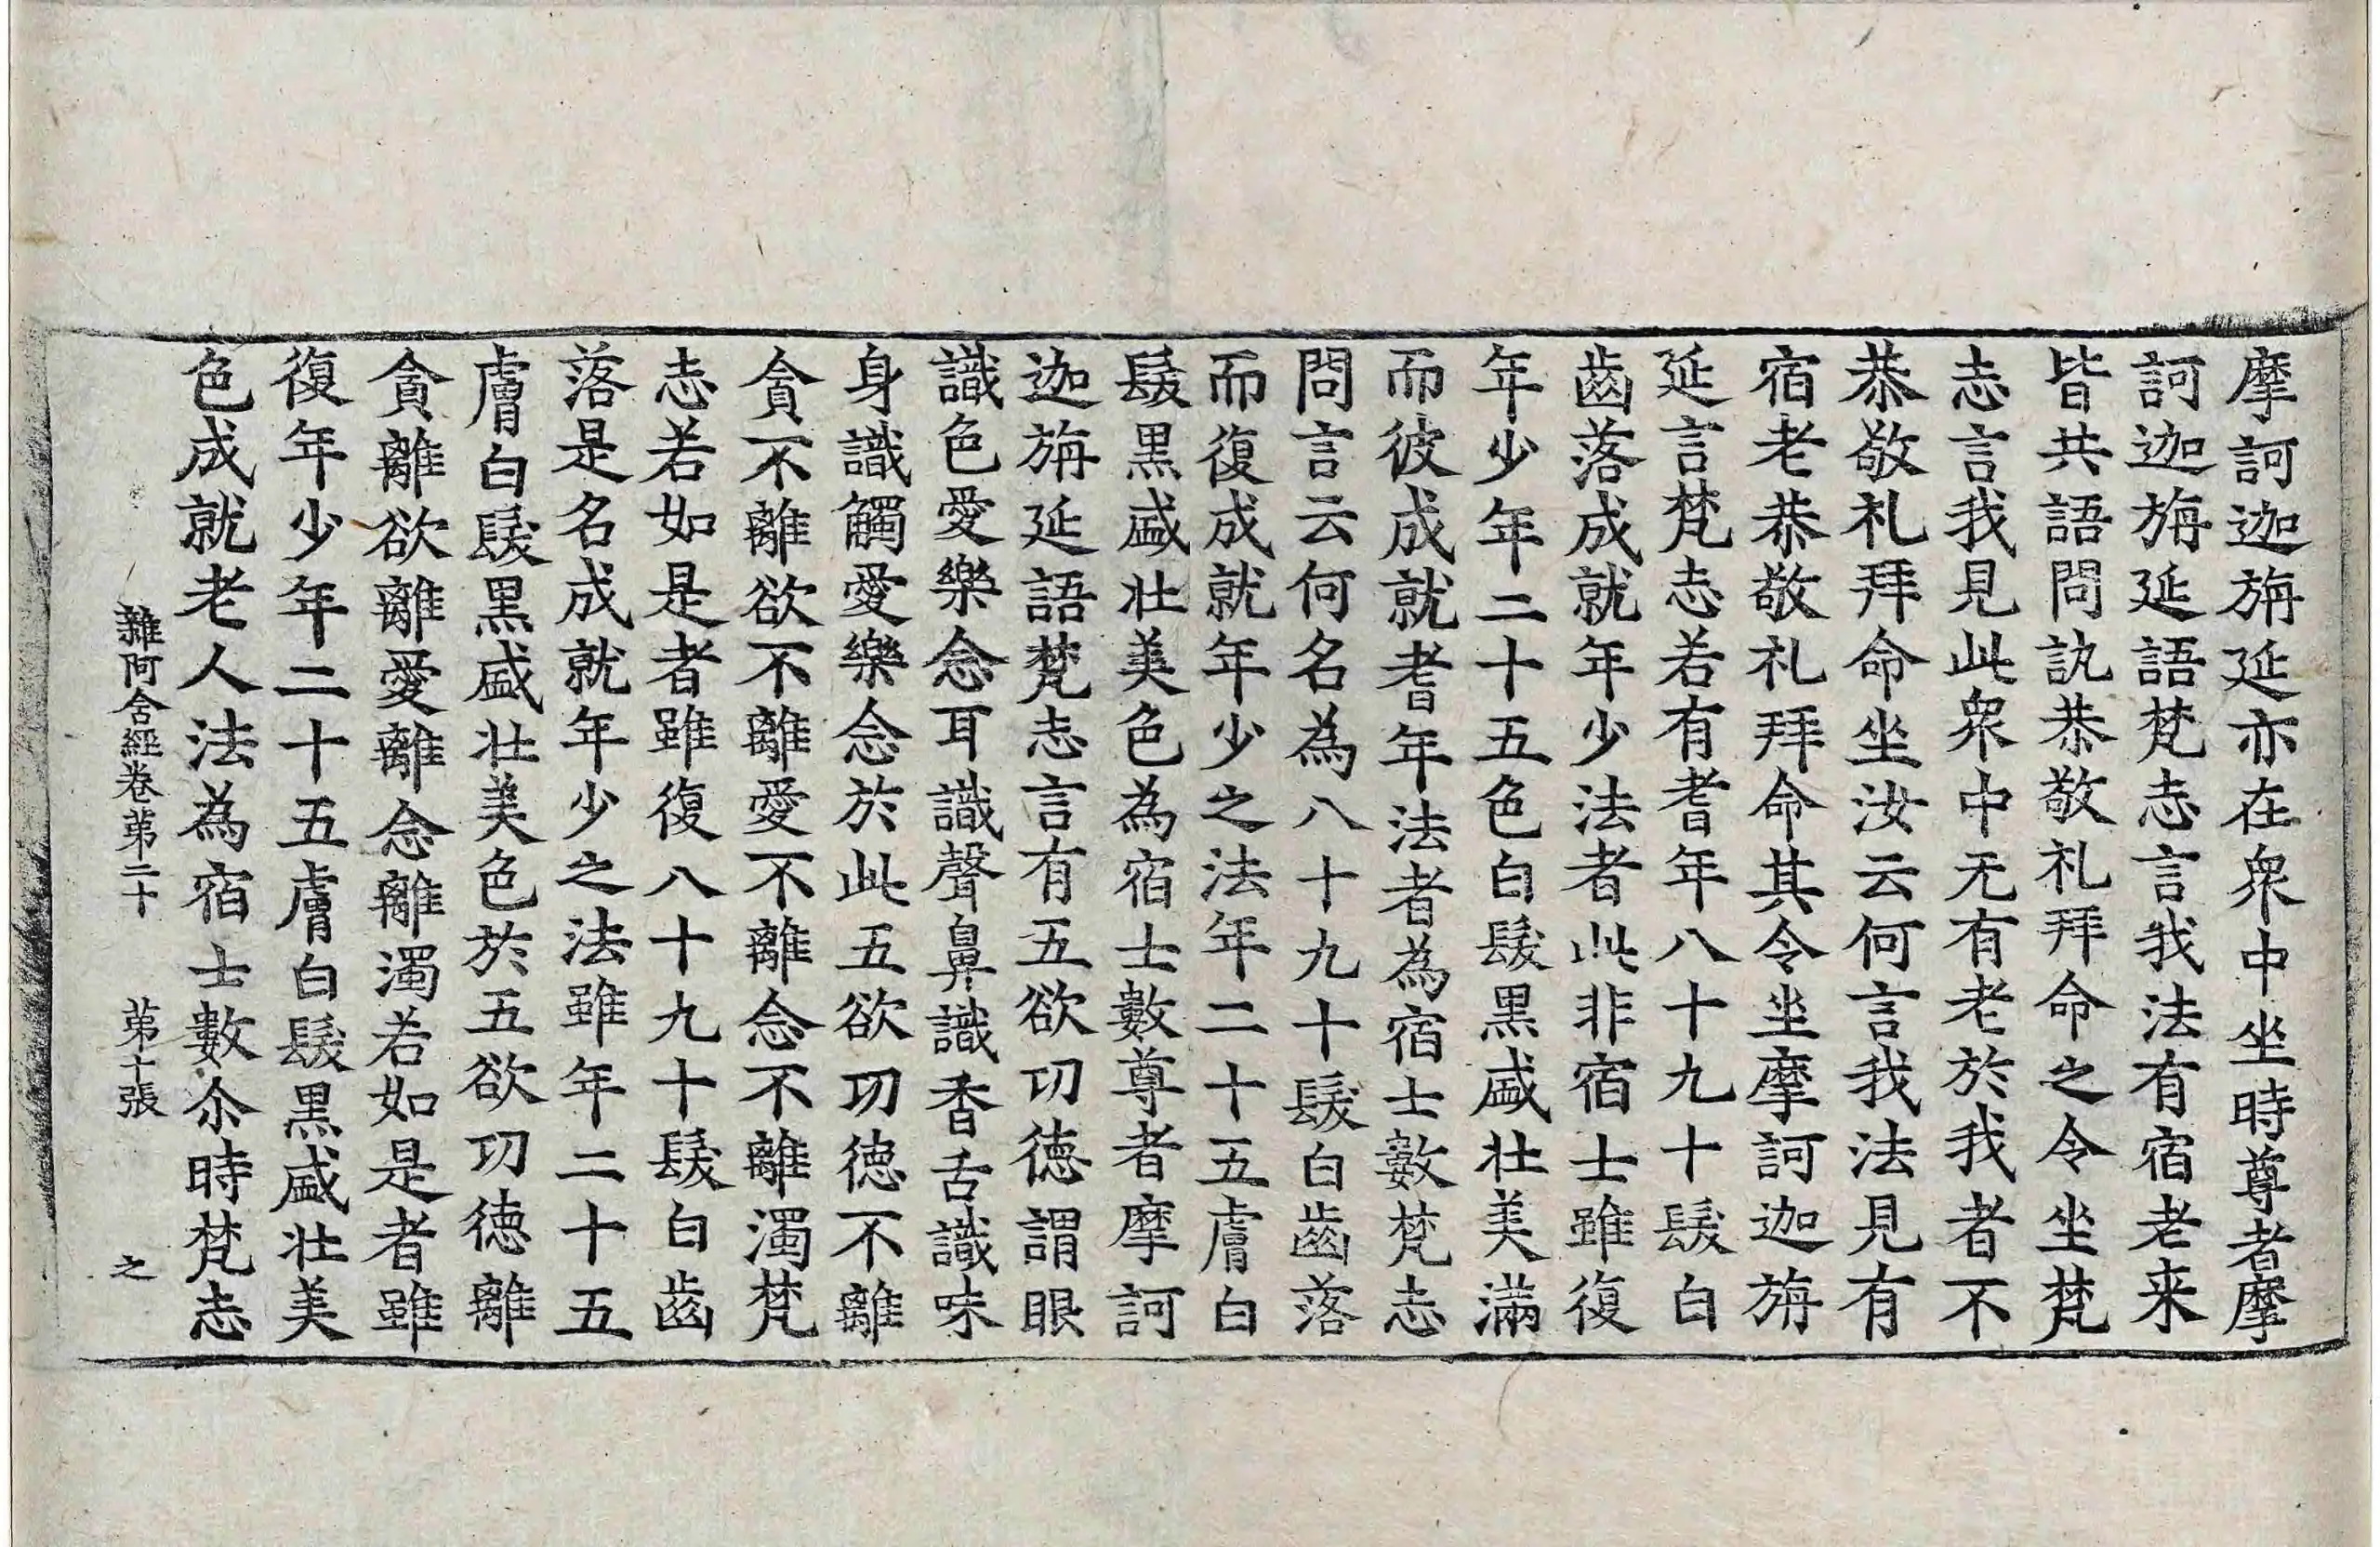 摩訶迦旃延亦在衆中坐時尊者摩
訶迦旃延語梵志言我法有宿老来
皆共語問訊恭敬礼拜命之令坐梵
志言我見此衆中无有老於我者不
恭敬礼拜命坐汝云何言我法見有
宿老恭敬礼拜命其令坐摩訶迦旃
延言梵志若有耆年八十九十髮白
齒落成就年少法者此非宿士雖復
年少年二十五色白髮黑盛壯美滿
而彼成就耆年法者為宿士數梵志
問言云何名為八十九十髮白齒落
而復成就年少之法年二十五膚白
髮黑盛壯美色為宿士數尊者摩訶
迦旃延語梵志言有五欲功徳謂眼
識色愛樂念耳識聲鼻識香舌識味
身識觸愛樂念於此五欲功徳不離
貪不離欲不離愛不離念不離濁梵
志若如是者雖復八十九十髮白齒
落是名成就年少之法雖年二十五
膚白髮黑盛壯美色於五欲功徳離
貪離欲離愛離念離濁若如是者雖
復年少年二十五膚白髮黑盛壯美
色成就老人法為宿士數尒時梵志
雜阿含經卷苐二十 苐十張 之